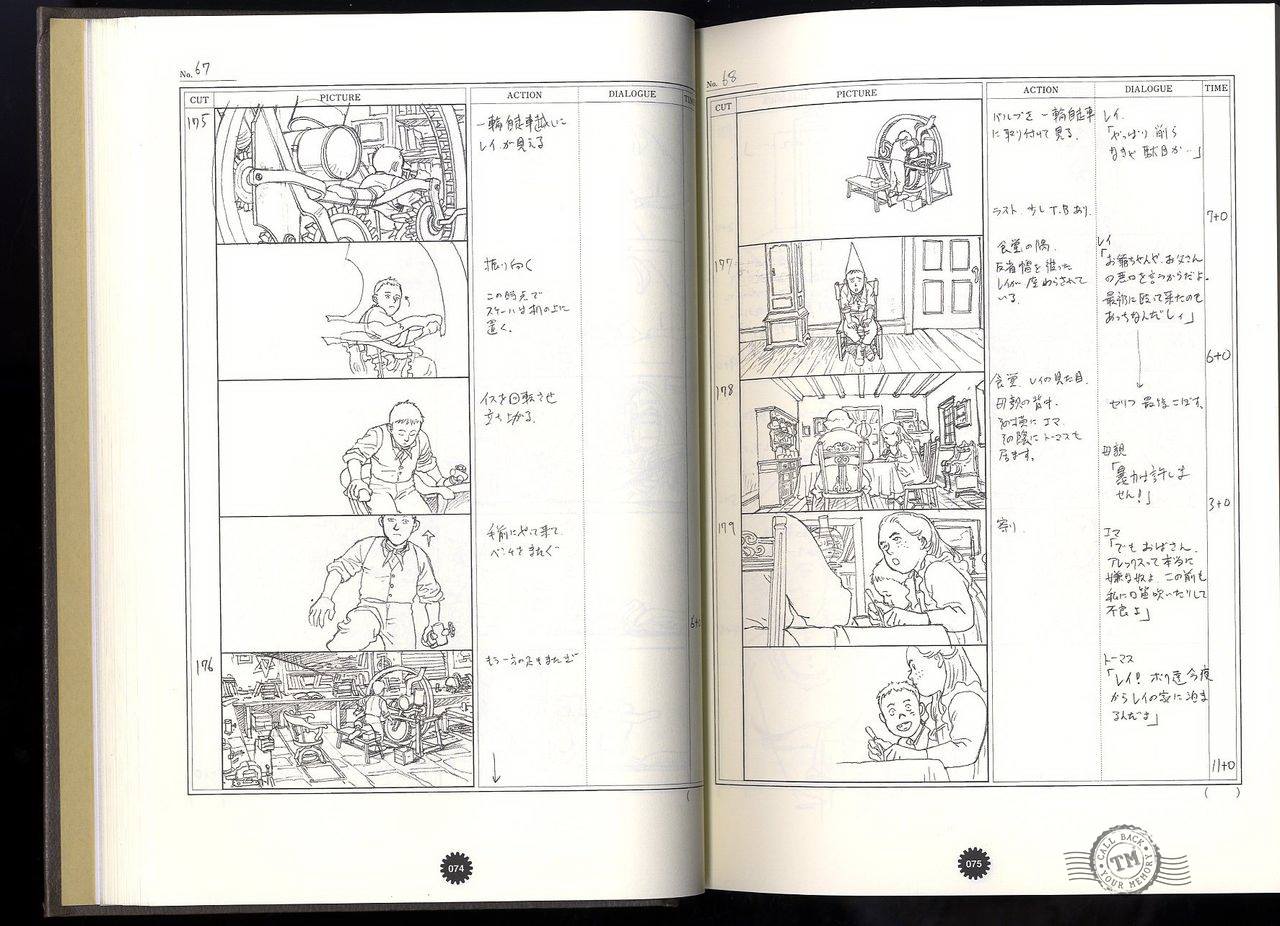 No. 67
CUT
PICTURE
ACTION
DIALOGUE
TIME
175
一輪自走車越しに
レイが見える
振り向く
この時点で
スチームは机の上に
置く。
イスを回転させ
立ち上がる。
手前にやって来て
ベンチをまたぐ
6+0
176
もう一方の足もまたぎ
074
No. 68
CUT
PICTURE
ACTION
DIALOGUE
TIME
バルブを一輪自走車
に取り付けて見る。
レイ
「やっぱり削ら
なきゃ駄目か…」
ラスト 少しT.Bあり
7+0
177
食堂の隅。
反省帽を被った
レイが座わらされて
いる。
レイ
「お爺ちゃんや、お父さん
の悪口を言うからだよ。
最初に殴って来たのも
あっちなんだしィ」
6+0
178
食堂 レイの見た目
母親の背中。
その横にエマ
その陰にトーマスも
居ます。
セリフ 最後こぼす。
母親
「暴力は許しま
せん!」
3+0
179
寄り
エマ
「でもおばさん、
アレックスって本当に
嫌な奴よ この前も
私に口笛吹いたりして
不良よ」
トーマス
「レイ! ボク達今夜
からレイの家に泊ま
るんだよ」
11+0
( )
075
CALL BACK
TM
YOUR MEMORY